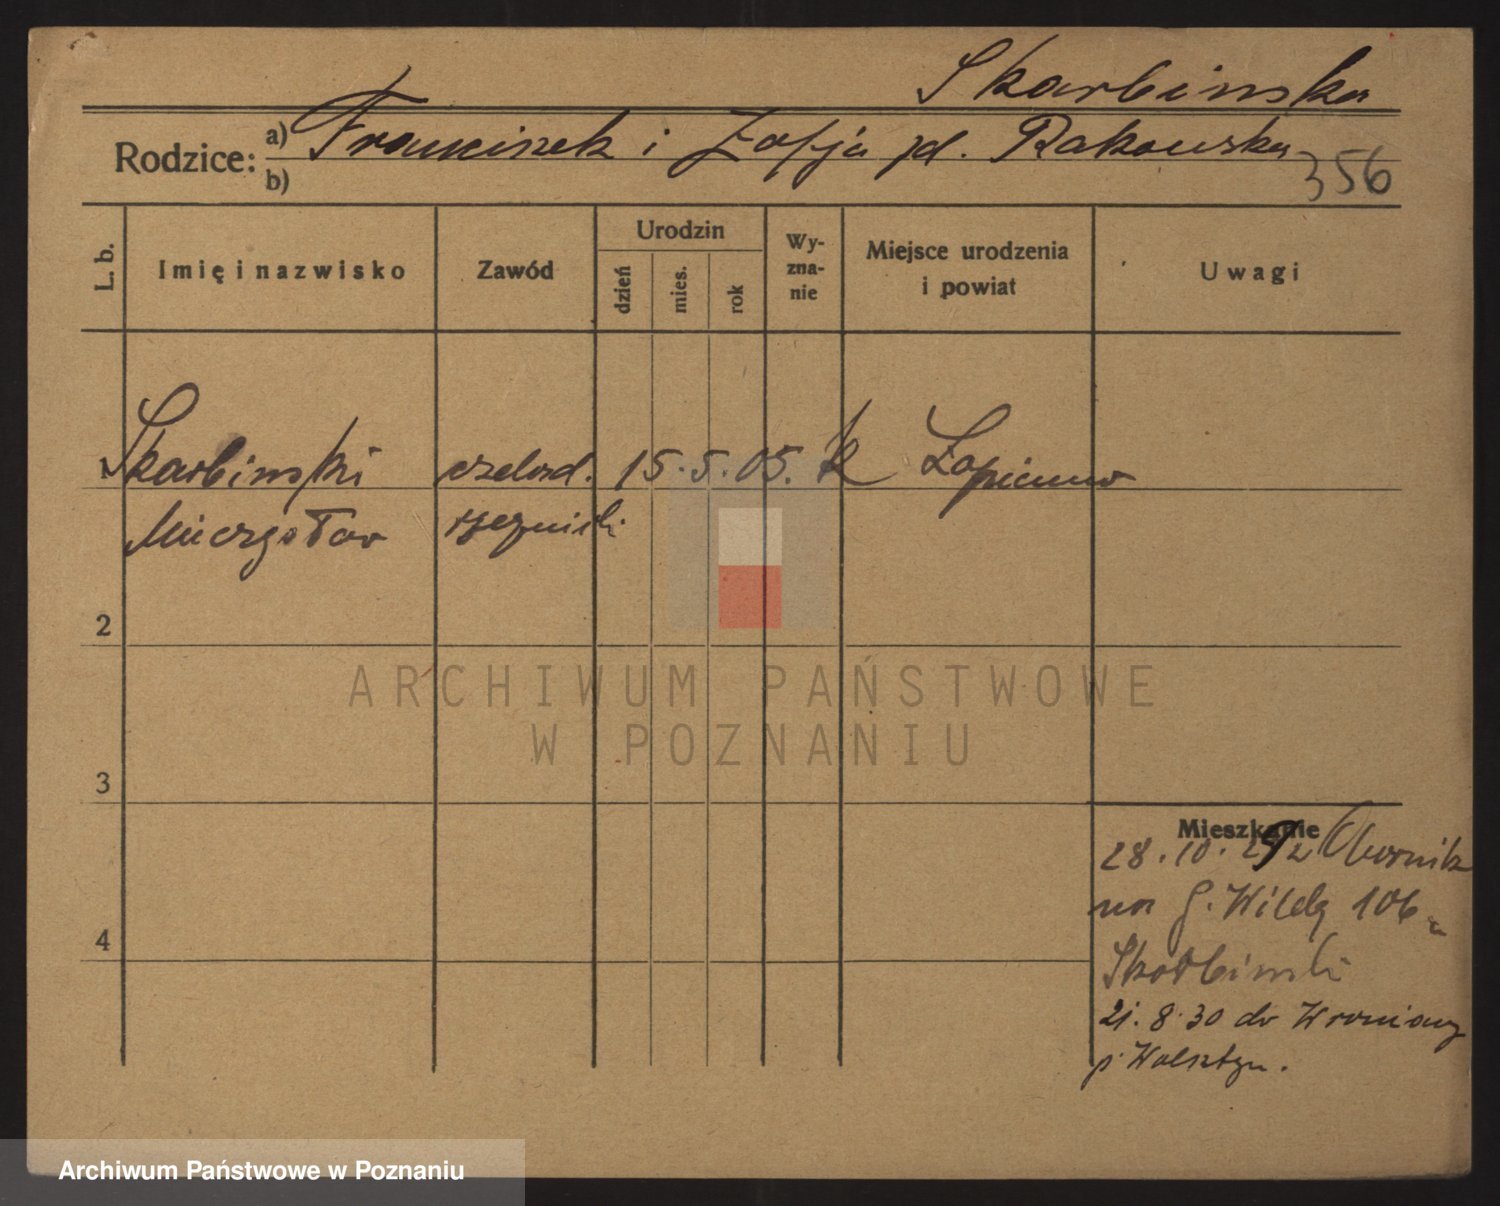 Skarbinska
Rodzice: a) Franciszek i Zofja zd. Rakowska
b)
356
L. b.
Imię i nazwisko
Zawód
Urodzin
dzień
mies.
rok
Wy-
zna-
nie
Miejsce urodzenia
i powiat
Uwagi
1 Skarbinski czelad. 15. 5. 05. k Łopienno
Mieczysław rzeźnicki
2
3
4
Mieszkanie
28. 10. 29 z Obornik
na G. Wildę 106
Skarbinski
21. 8. 30 do Wroniawy
p. Wolsztyn.
ARCHIWUM PAŃSTWOWE
W POZNANIU
Archiwum Państwowe w Poznaniu